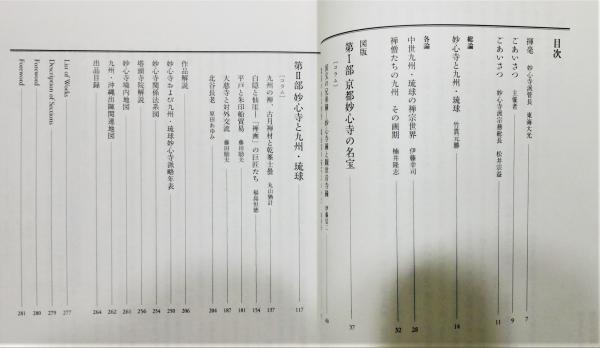 目次
揮毫 妙心寺派管長 東海大光 7
ごあいさつ 主催者 9
ごあいさつ 妙心寺派宗務総長 松井宗益 11
総論
妙心寺と九州・琉球 竹貫元勝 14
各論
中世九州・琉球の禅宗世界 伊藤幸司 28
禅僧たちの九州 その画期 楠井隆志 32
図版
第Ⅰ部 京都妙心寺の名宝 37
[コラム]
第Ⅱ部 妙心寺と九州・琉球 117
[コラム]
九州の禅、古月禅材と乾峯士曇 丸山猶計 137
白隠と仙厓―「禅画」の巨匠たち 福島恒徳 154
平戸と朱印船貿易 藤田励夫 181
大慈寺と対外交流 藤田励夫 187
北谷長老 原田あゆみ 204
作品解説 206
妙心寺および九州・琉球妙心寺派略年表 250
妙心寺関係法系図 254
塔頭寺院解説 256
妙心寺境内地図 261
九州・沖縄出陳関連地図 262
出品目録 264
List of Works 277
Description of Sections 279
Foreword 280
Foreword 281